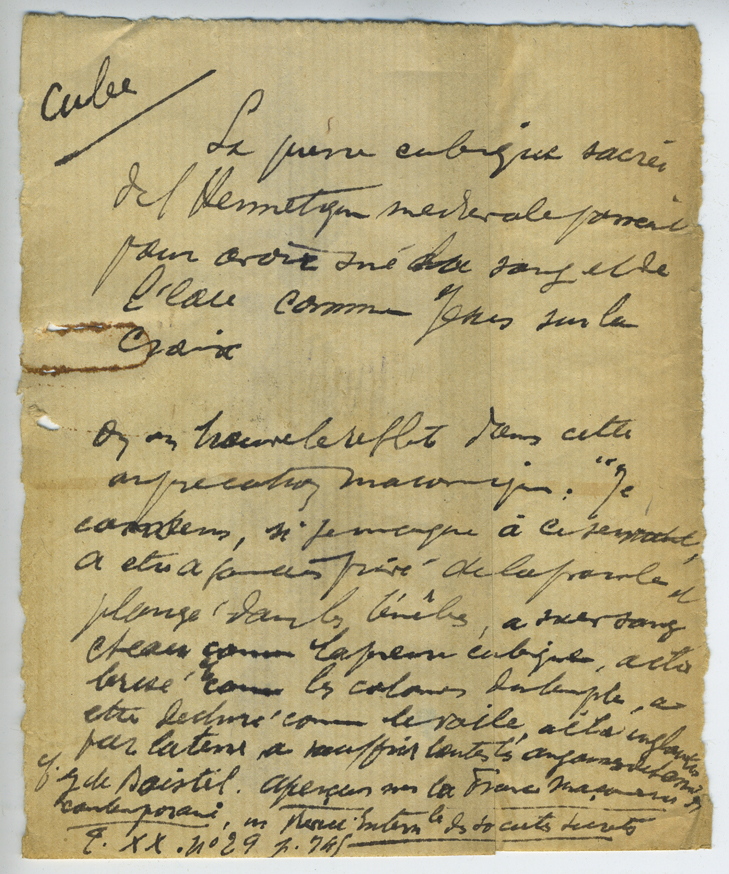 Cube
La pierre cubique sacrée
de l'Hermetique medievale passait
pour avoir sué du sang et de
l'eau comme Jesus sur la
Croix
On en trouve le reflet dans cette
imprecation maconnique : "Je
consens, si je manque à ce serment,
a etre a jamais privé de la parole et
plongé dans les ténèbres, a suer sang
et eau comme la pierre cubique, a etre
brisé comme les colonnes du temple, a
etre dechiré comme le voile, a etre englouti
par la terre, a souffrir toutes les angoisses
g. de Boistel. aperçus sur la Franc Maçonnerie
contemporaine, in Revue Intern le des societes secretes
T. XX. nº 29 p. 745